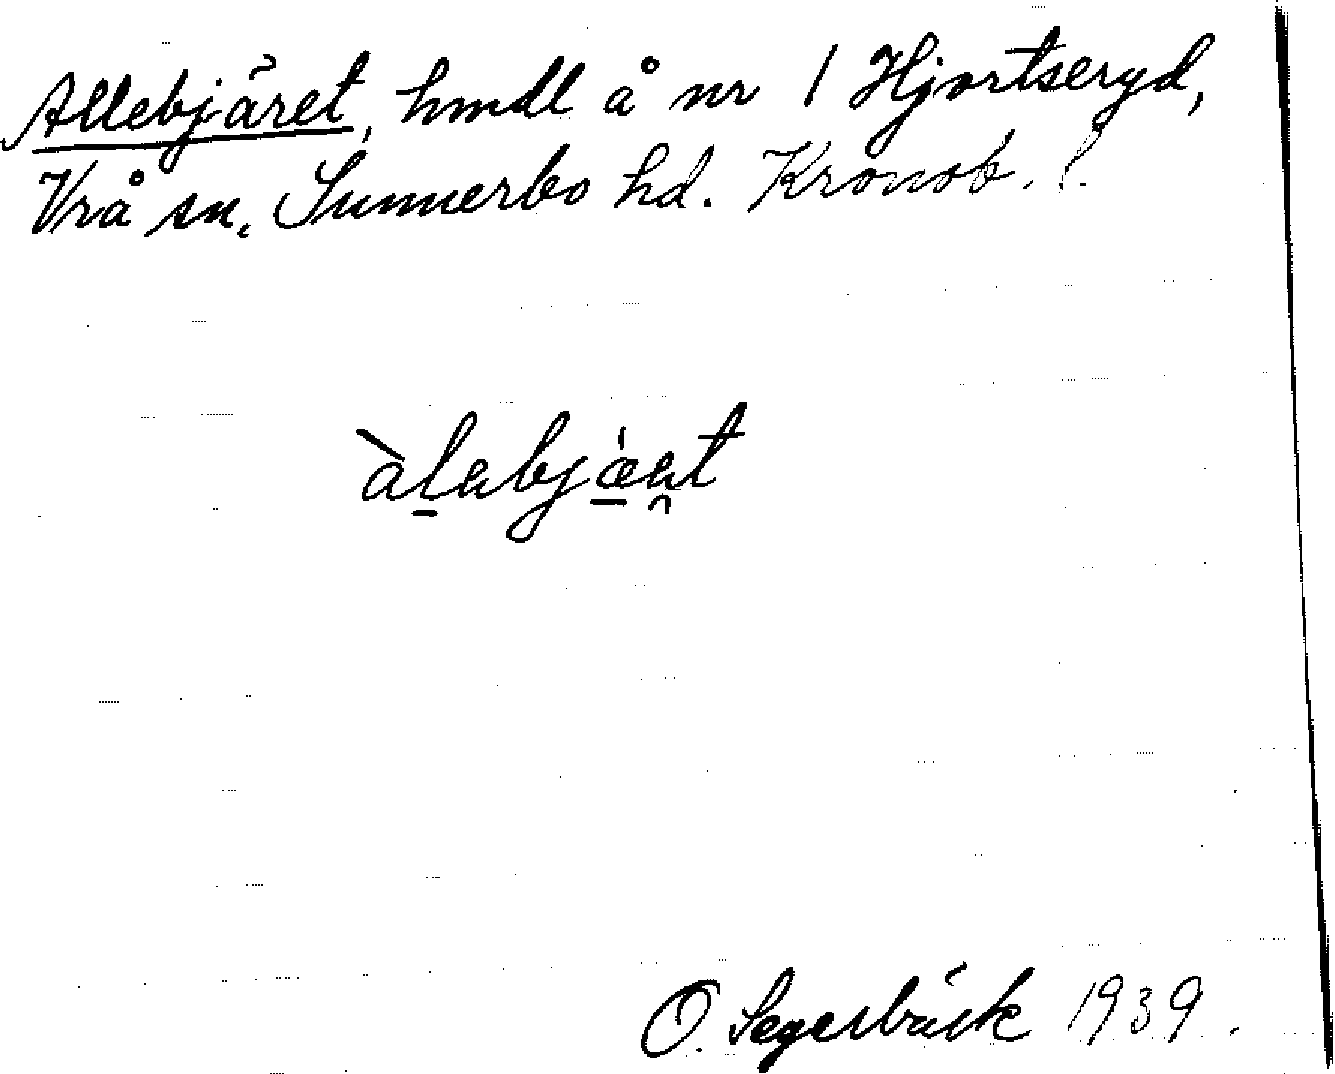 Allebjäret, hmdl å nr 1 Hjortseryd,
Vrå sn. Sunnerbo hd. Kronob. l.
O. Segerbäck 1939.